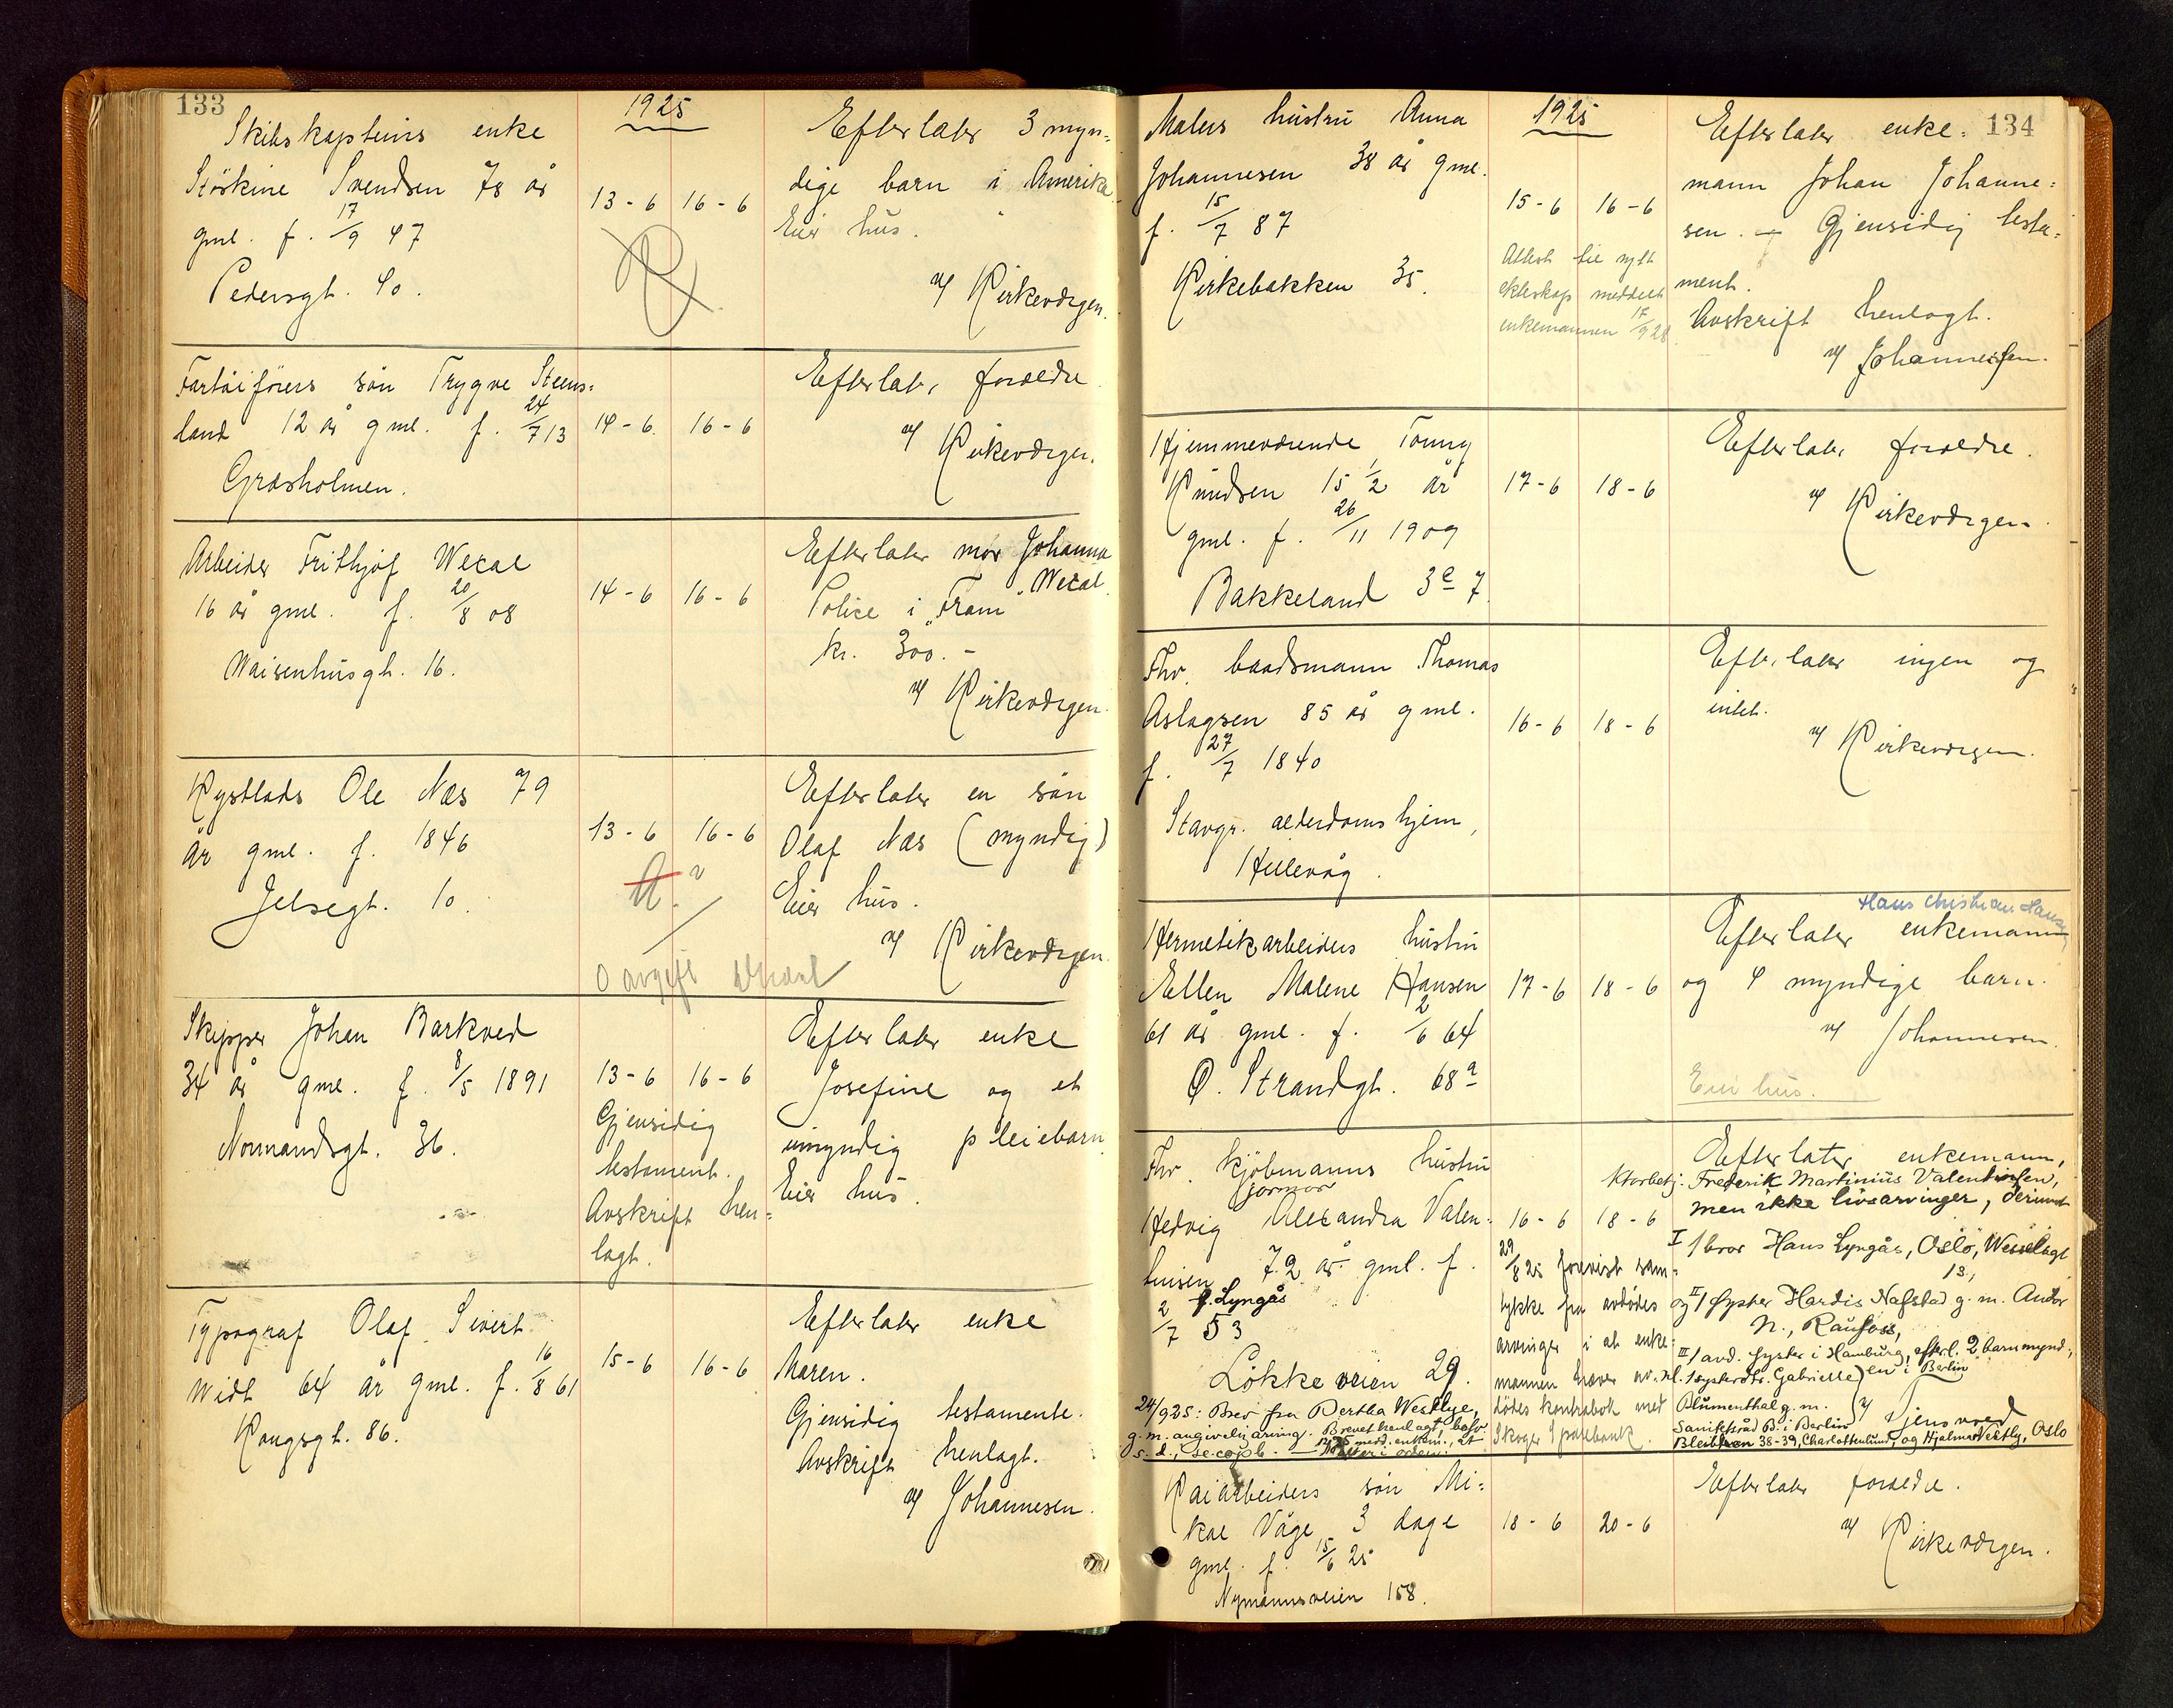 133
1925
Skibskapteins enke
Störkine Svendsen 78 år
gml. f. 17/9 47
Pedersgt. 40.
13-6 16-6
Efterlater 3 myn-
dige barn i Amerika.
Eier hus.
v/ Kirkeværgen.
Fartöiförers sön Trygve Steens-
land 12 år gml. f. 24/7 13
Græsholmen.
14-6. 16-6
Efterlat. forældre
v/ Kirkeværgen.
Arbeider Frithjof Wecal
16 år gml. f. 20/8 08
Waisenhusgt. 16.
14-6 16-6
Efterlater mor Johanna
Wecal.
Police i "Fram"
kr. 300.-
v/ Kirkeværgen.
Ole Næs 79
år gml. f. 1846
Jelsegt. 10.
13-6 16-6
0 avgift
Efterlater en sön
Olaf Næs (myndig)
Eier hus.
v/ Kirkeværgen.
Skipper Johan Barkved
34 år gml. f. 8/5 1891
Normandsgt. 36.
13-6 16-6
Gjensidig
testament.
Avskrift hen-
lagt.
Efterlater enke
Josefine og et
umyndig pleiebarn
Eier hus.
Typograf Olaf Sivert
Widt 64 år gml. f. 16/8 61
Kongsgt. 86.
15-6 16-6
Efterlater enke
Maren.
Gjensidig testamente.
Avskrift henlagt.
v/ Johannesen.
134
1925
Malers hustru Anna
Johannesen 38 år gml.
f. 15/7 87
Kirkebakken 35.
15-6 16-6
Attest til nytt
ekteskap meddelt
enkemannen 17/9 28
Efterlater enke-
mann Johan Johanne-
sen. - Gjensidig testa-
ment.
Avskrift henlagt.
v/ Johannessen.
Hjemmeværende Tonny
Knudsen 15 1/2 år
gml. f. 26/11 1909
Bakkeland 3e 7.
17-6 18-6
Efterlat. forældre.
v/ Kirkeværgen.
Fhv. baadsmann Thomas
Aslagsen 85 år gml.
f. 27/7 1840
Stavgr. alderdomshjem,
Hillevåg.
16-6 18-6
Efterlater ingen og
intet.
v/ Kirkeværgen.
Hermetikarbeiders hustru
Ellen Malene Hansen
61 år gml. f. 2/6 64
Ø. Strandgt. 68a
17-6 18-6
Hans Christian Hansen
Efterlater enkemann
og 4 myndige barn.
v/ Johannesen.
Eier hus.
Fhv. kjöbmanns hustru
jormor
Hedvig Alexandra Valen-
tinsen 72 år gml. f.
f. Lyngås
2/7 53
Lökkeveien 29.
24/9 25: Brev fra Bertha Westlye,
g.m. angivelig arving. Brevet henlagt,
16-6 18-6
29/8 25 forevist sam-
tykke fra avdödes
arvinger i at enke-
mannen hæver av-
dödes kontrabok med
Skoger Sparebank.
Efterlater enkemann,
Ktorbetj. Frederik Martinius Valentinsen,
men ikke livsarvinger, derimot
I/ bror Hans Lyngås, Oslo, Wesselsgt
13,
og II/ Syster Hardis Nafstad g.m. Andor
N., Raufoss,
III/ avd. Syster i Hamburg, efterl. 2 barn mynd.,
nl. 1 systerdtr. Gabrielle) en i Berlin
Blumenthal g.m.
Sanitetsråd B. i Berlin
Bleibtreu 38-39, Charlottenlund, og Hjalmar Vestly, Oslo
v/ Tjensvoed
Kaiarbeiders sön Mi-
kal Våge 3 dage
gml. f. 15/6 25
Nymannsveien 158.
18-6 20-6
Efterlater forældre.
v/ Kirkeværgen.